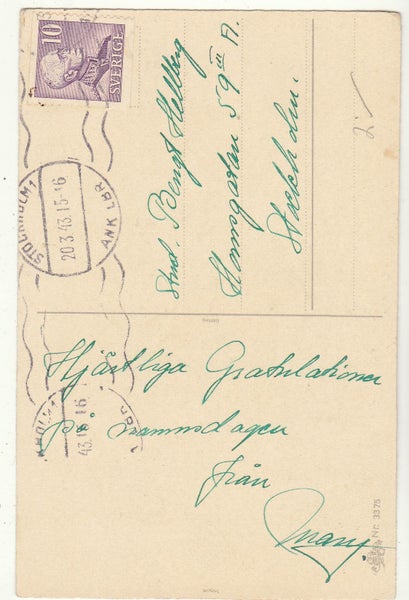 10
SVERIGE
STOCKHOLM 1
20.3.43.15-16
ANK LBR
Stud. Bengt Hellberg
Hornsgatan 59 III A.
Stockholm.
2:-
Hjärtliga Gratulationer
på namnsdagen
från
Nr. 3375